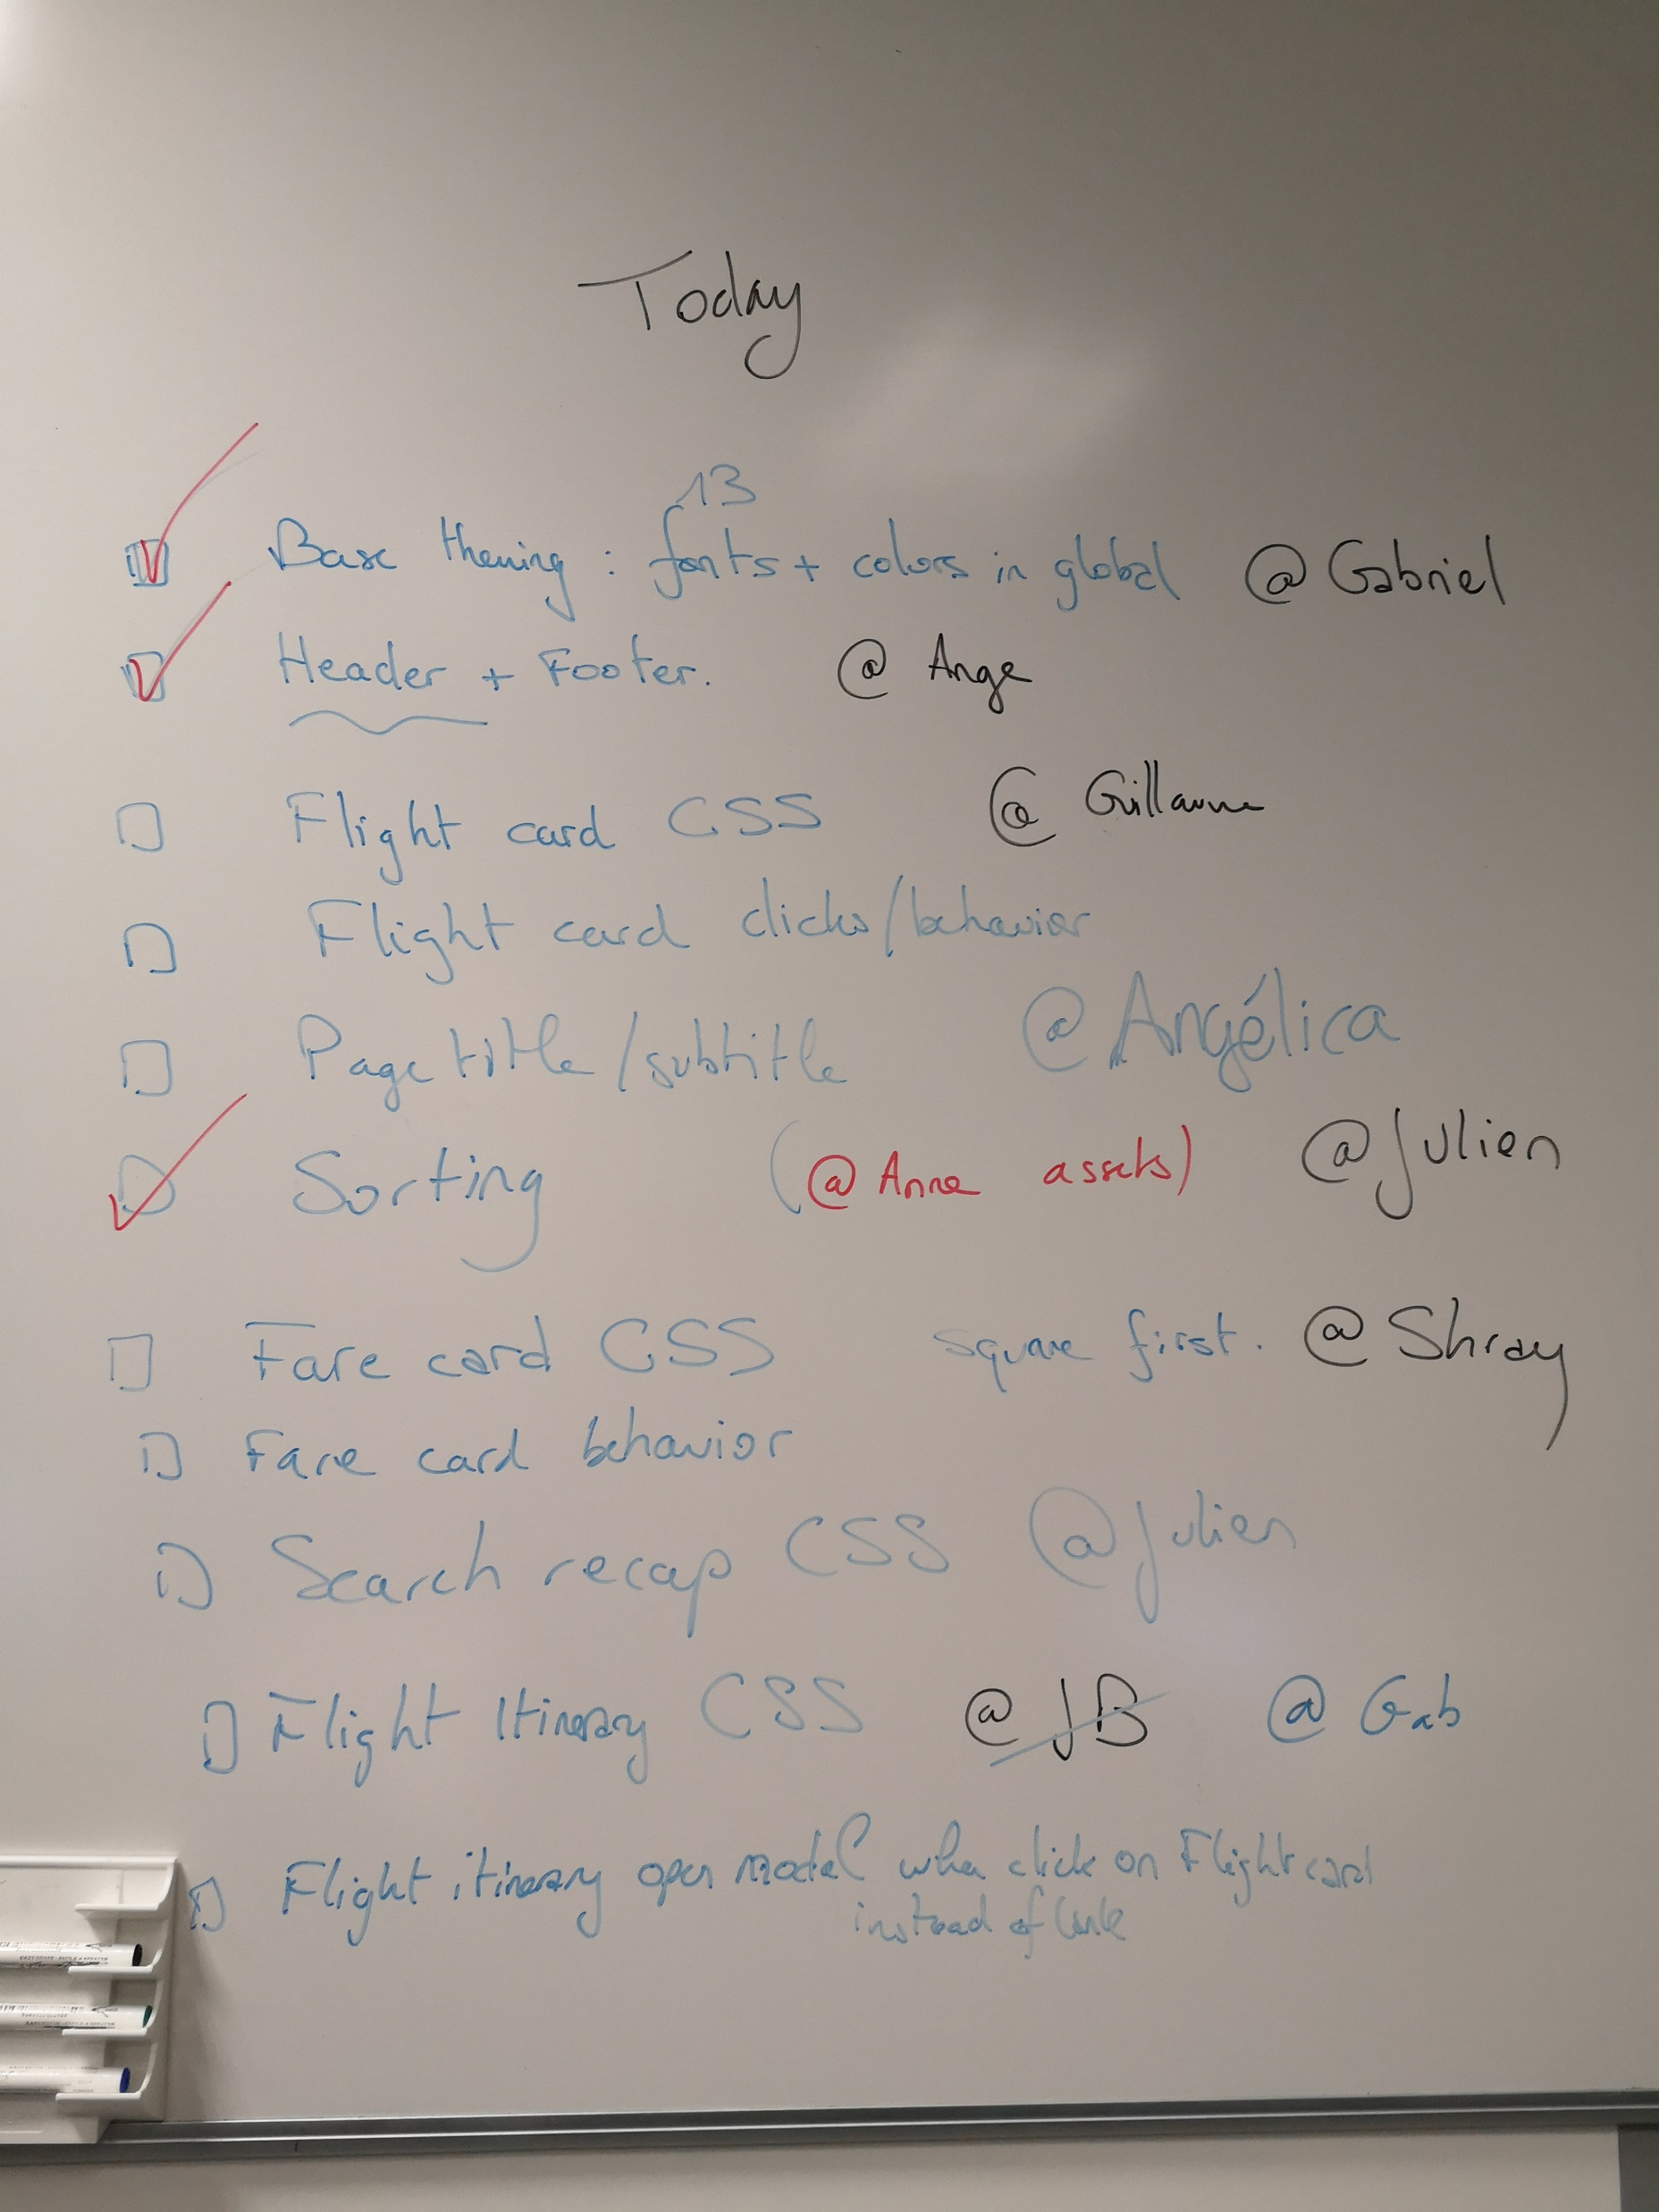 Today
13
Base theming : fonts + colors in global @ Gabriel
Header + Footer. @ Ange
Flight card CSS @ Guillaume
Flight card clicks/behavior
Page title/subtitle @Angélica
Sorting (@ Anna assets) @Julien
Fare card CSS square first. @ Shray
Fare card behavior
Search recap CSS @Julien
Flight Itinerary CSS @ JB @ Gab
Flight itinerary open modal when click on Flight card
instead of link